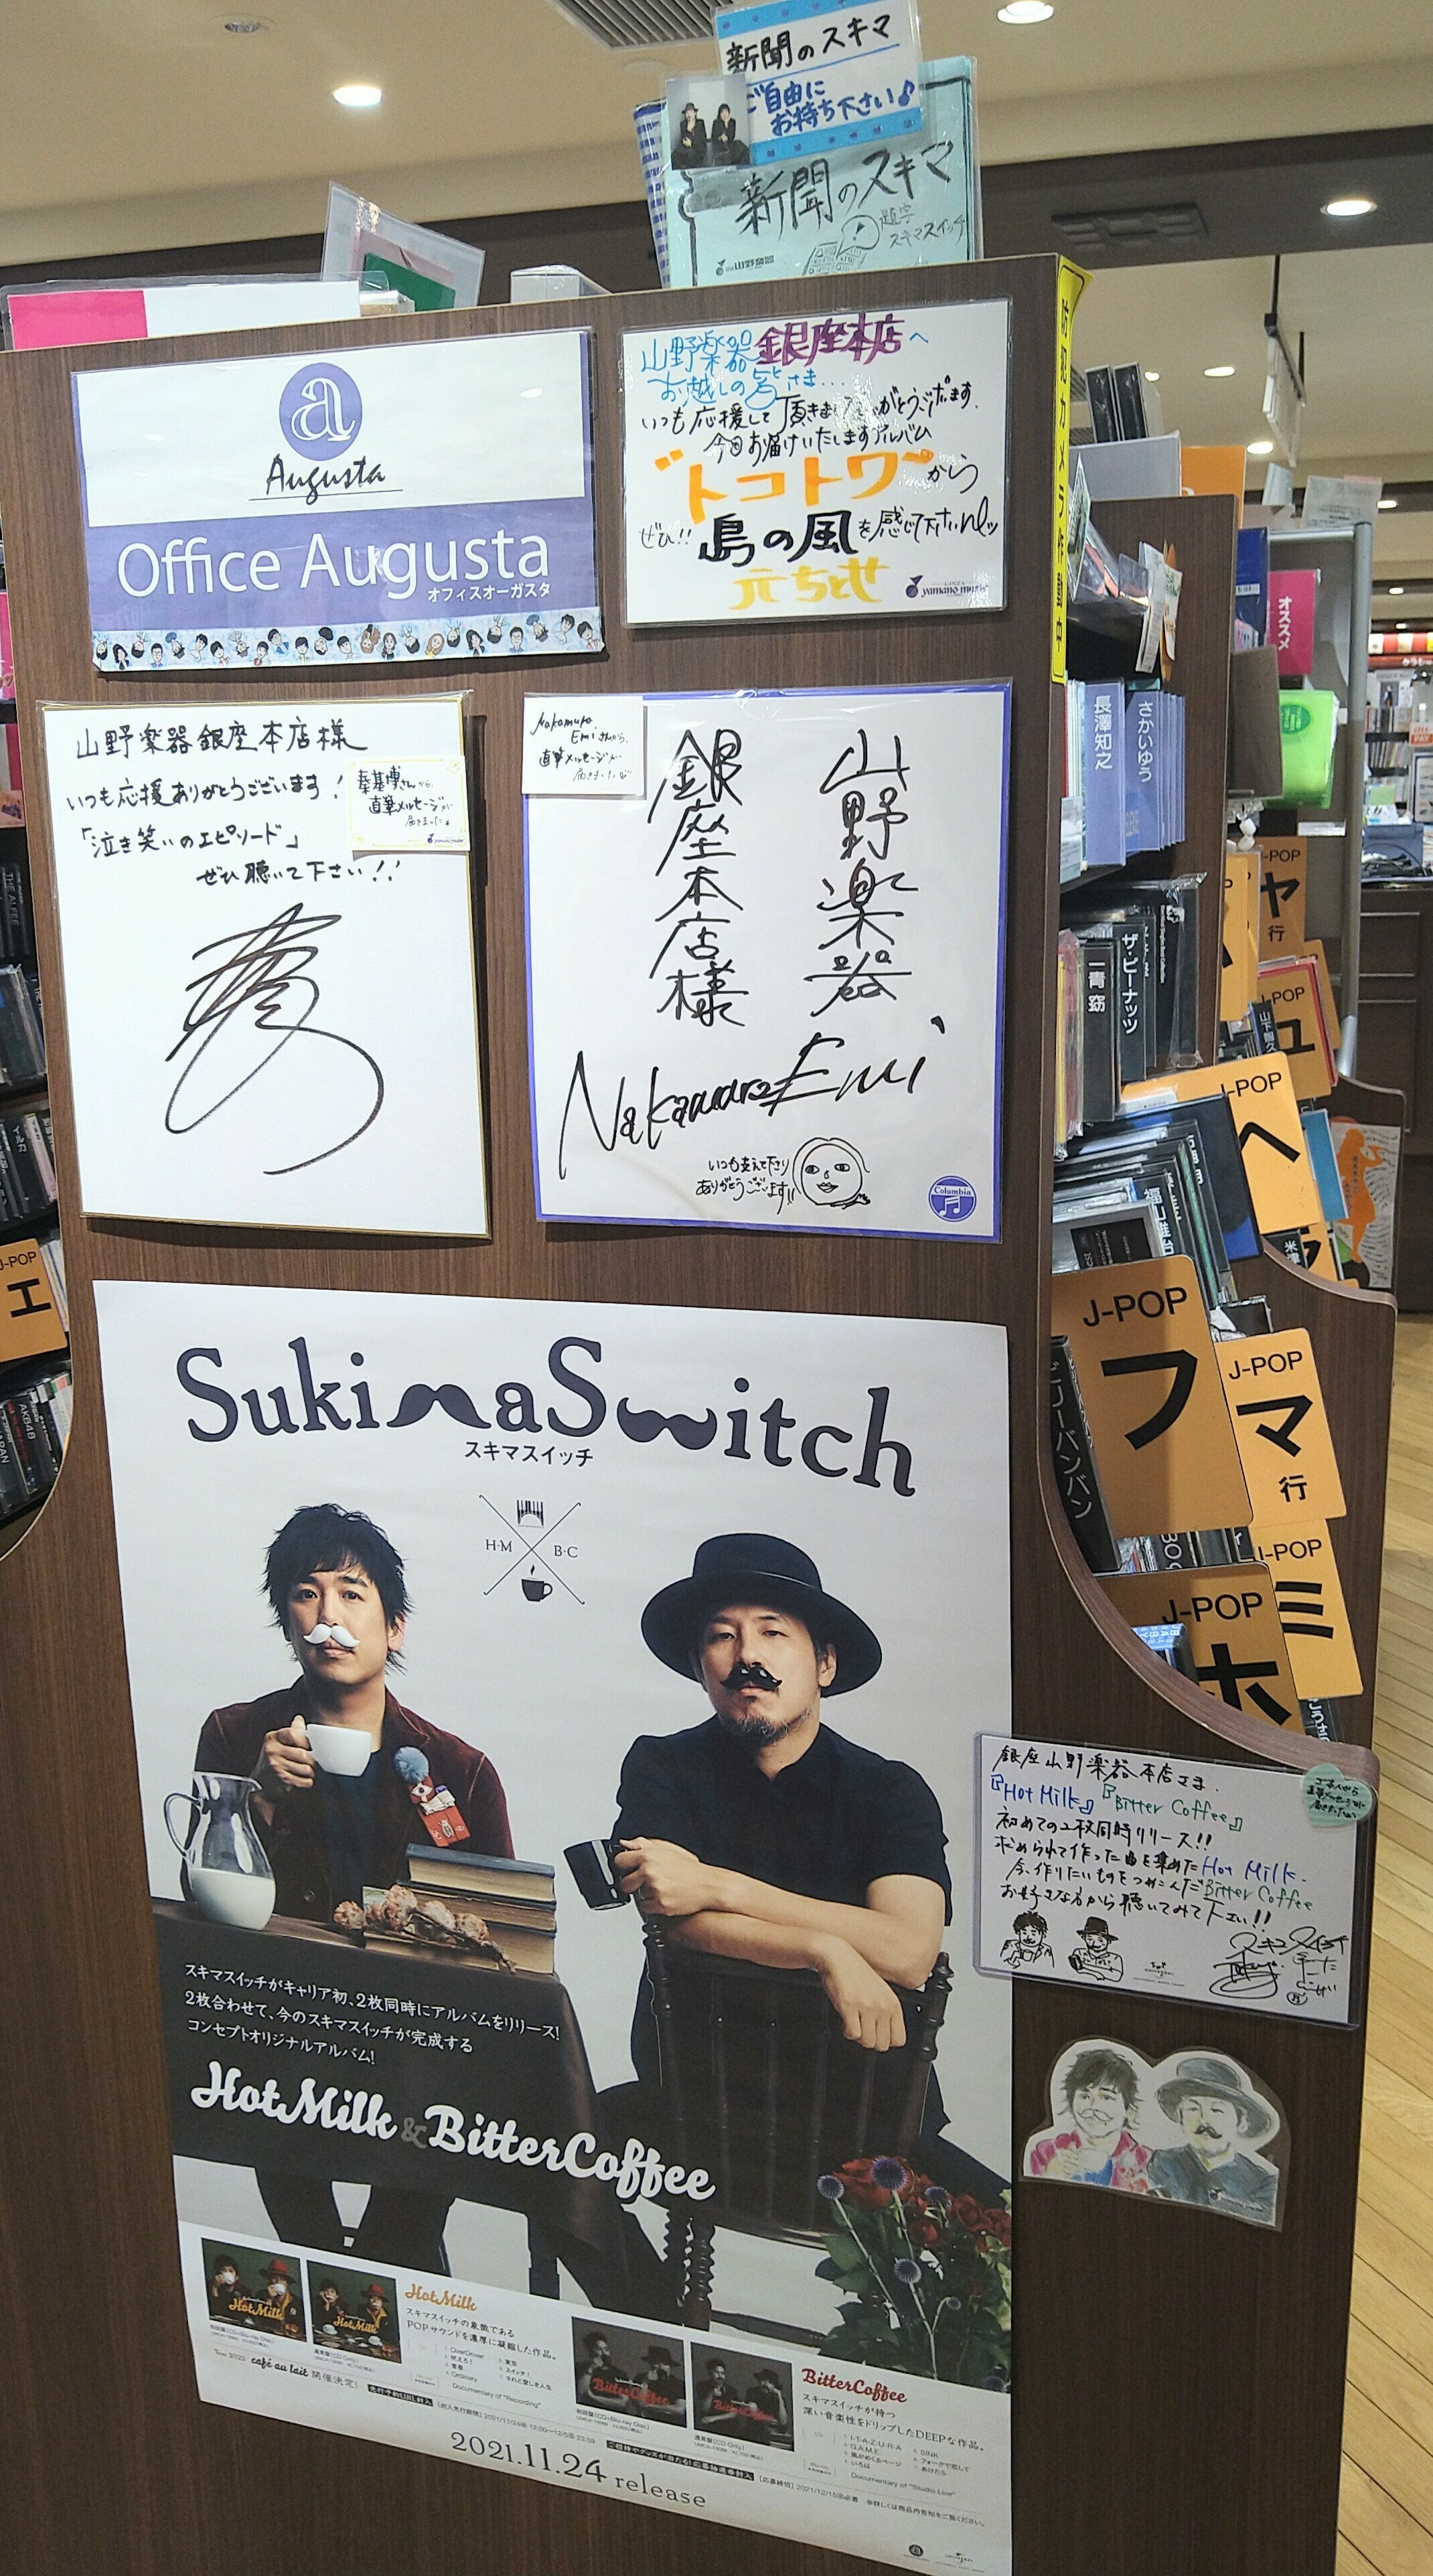 新聞のスキマ
ご自由に
お持ち下さい♪
新聞のスキマ
題字
スキマスイッチ
a
Augusta
Office Augusta
オフィスオーガスタ
山野楽器銀座本店へ
お越しの皆さま...
いつも応援して頂きま
がとうございます.
今回お届けいたしますアルバム
"トコトワ"から
ぜひ!!島の風を感じて下さい
元ちとせ
GINZA
yamano music
防犯カメラ作動中
山野楽器銀座本店様
いつも応援ありがとうございます!
「泣き笑いのエピソード」
ぜひ聴いて下さい!!
秦基博さんから
直筆メッセージが
届きました
Nakamura
Emiさんから、
直筆メッセージが
届きました
山野楽器
銀座本店様
NakamuraEmi
いつも支えて下さり
ありがとうございます!!
Columbia
SukimaSwitch
スキマスイッチ
H·M B·C
スキマスイッチがキャリア初、2枚同時にアルバムをリリース!
2枚合わせて、今のスキマスイッチが完成する
コンセプトオリジナルアルバム!
HotMilk & BitterCoffee
HotMilk
スキマスイッチの象徴である
POPサウンドを濃厚に凝縮した作品。
OverDriver
吠えろ!
青春
Ordinary
東京
スイッチ!
されど愛しき人生
Documentary of "Recording"
BitterCoffee
スキマスイッチが持つ
深い音楽性をドリップしたDEEPな作品。
I-T-A-Z-U-R-A
G.A.M.E.
風がめくるページ
いろは
SINK
フォークで恋して
あけたら
Documentary of "Studio Live"
Tour 2022 café au lait 開催決定!
2021.11.24 release
銀座山野楽器本店さま.
『Hot Milk』『Bitter Coffee』
初めての2枚同時リリース!!
求められて作った曲を集めたHot Milk.
今、作りたいものをつめこんだBitter Coffee
お好きな方から聴いてみて下さい!!
スキマスイッチ
オススメ
長澤知之
さかいゆう
一青窈
ザ・ピーナッツ
J-POP
ヤ
行
J-POP
ユ
J-POP
ヘ
J-POP
フ
J-POP
マ
行
J-POP
ミ
J-POP
ホ
ビリーバンバン
J-POP
エ
THE ALFEE
イルカ
AKB48